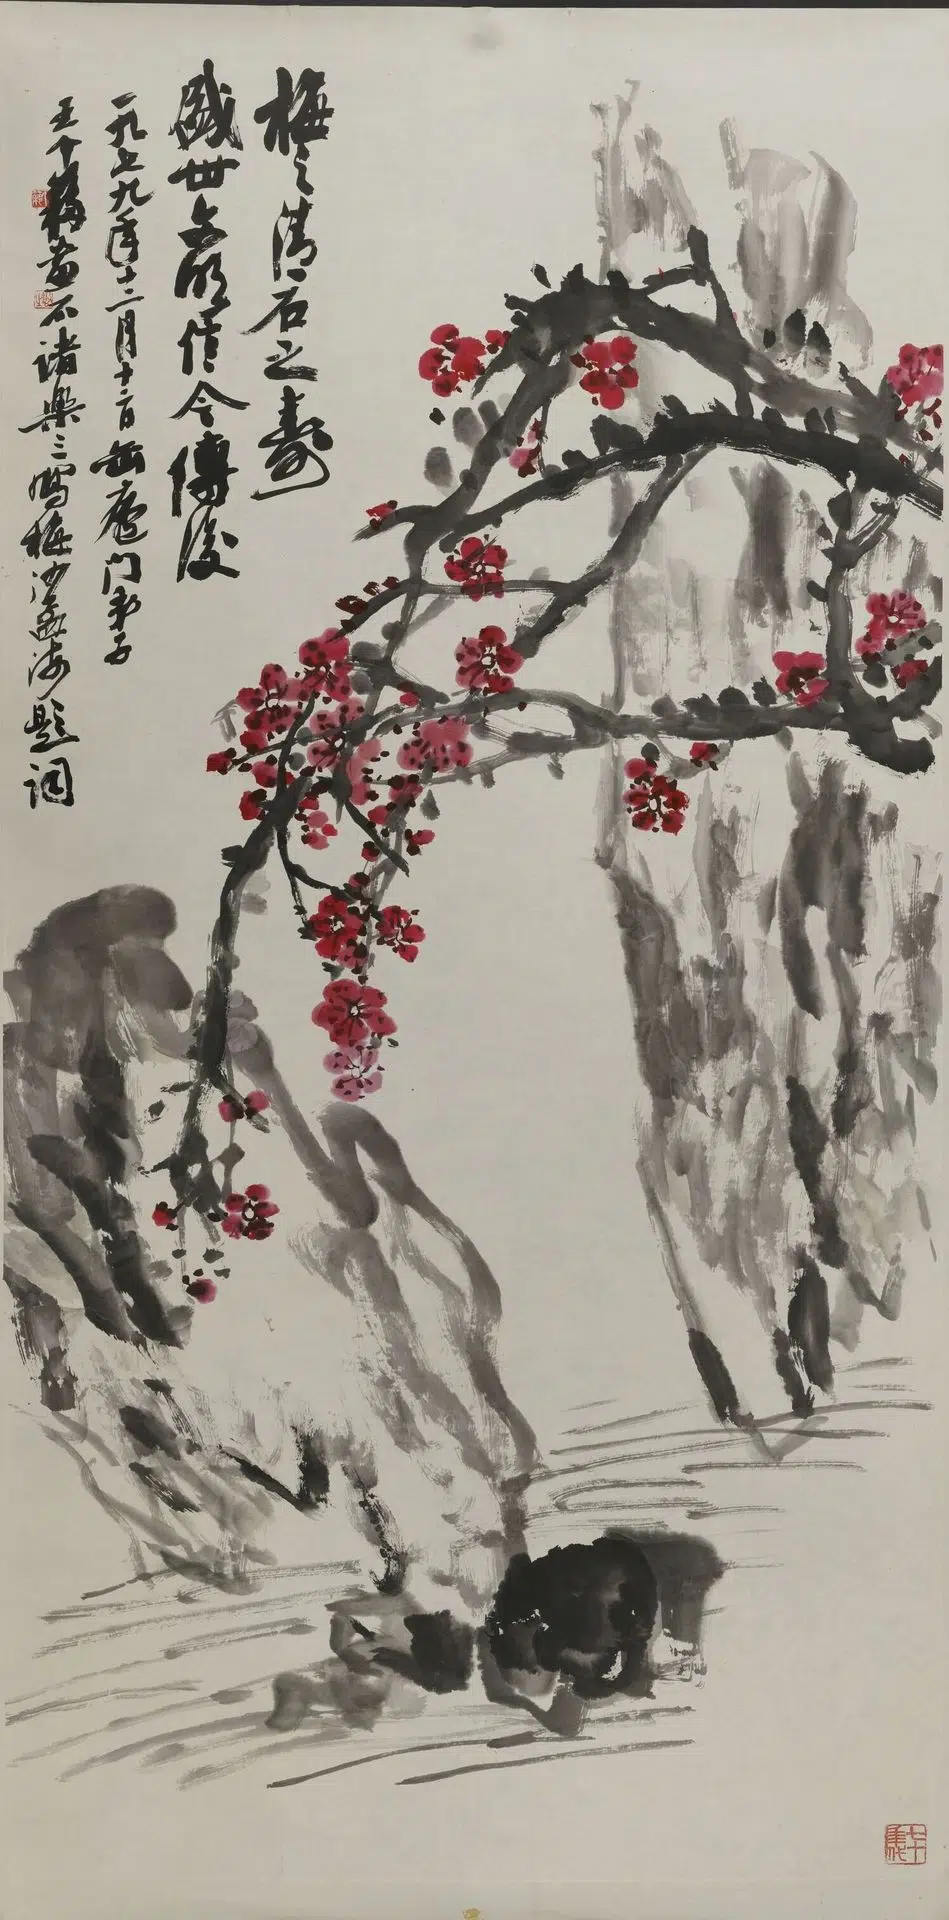 梅之清石之壽
盛世文明信今傳後
一九七九年十二月十二日缶廬門弟子
王个簃畫石諸樂三寫梅沙孟海題詞